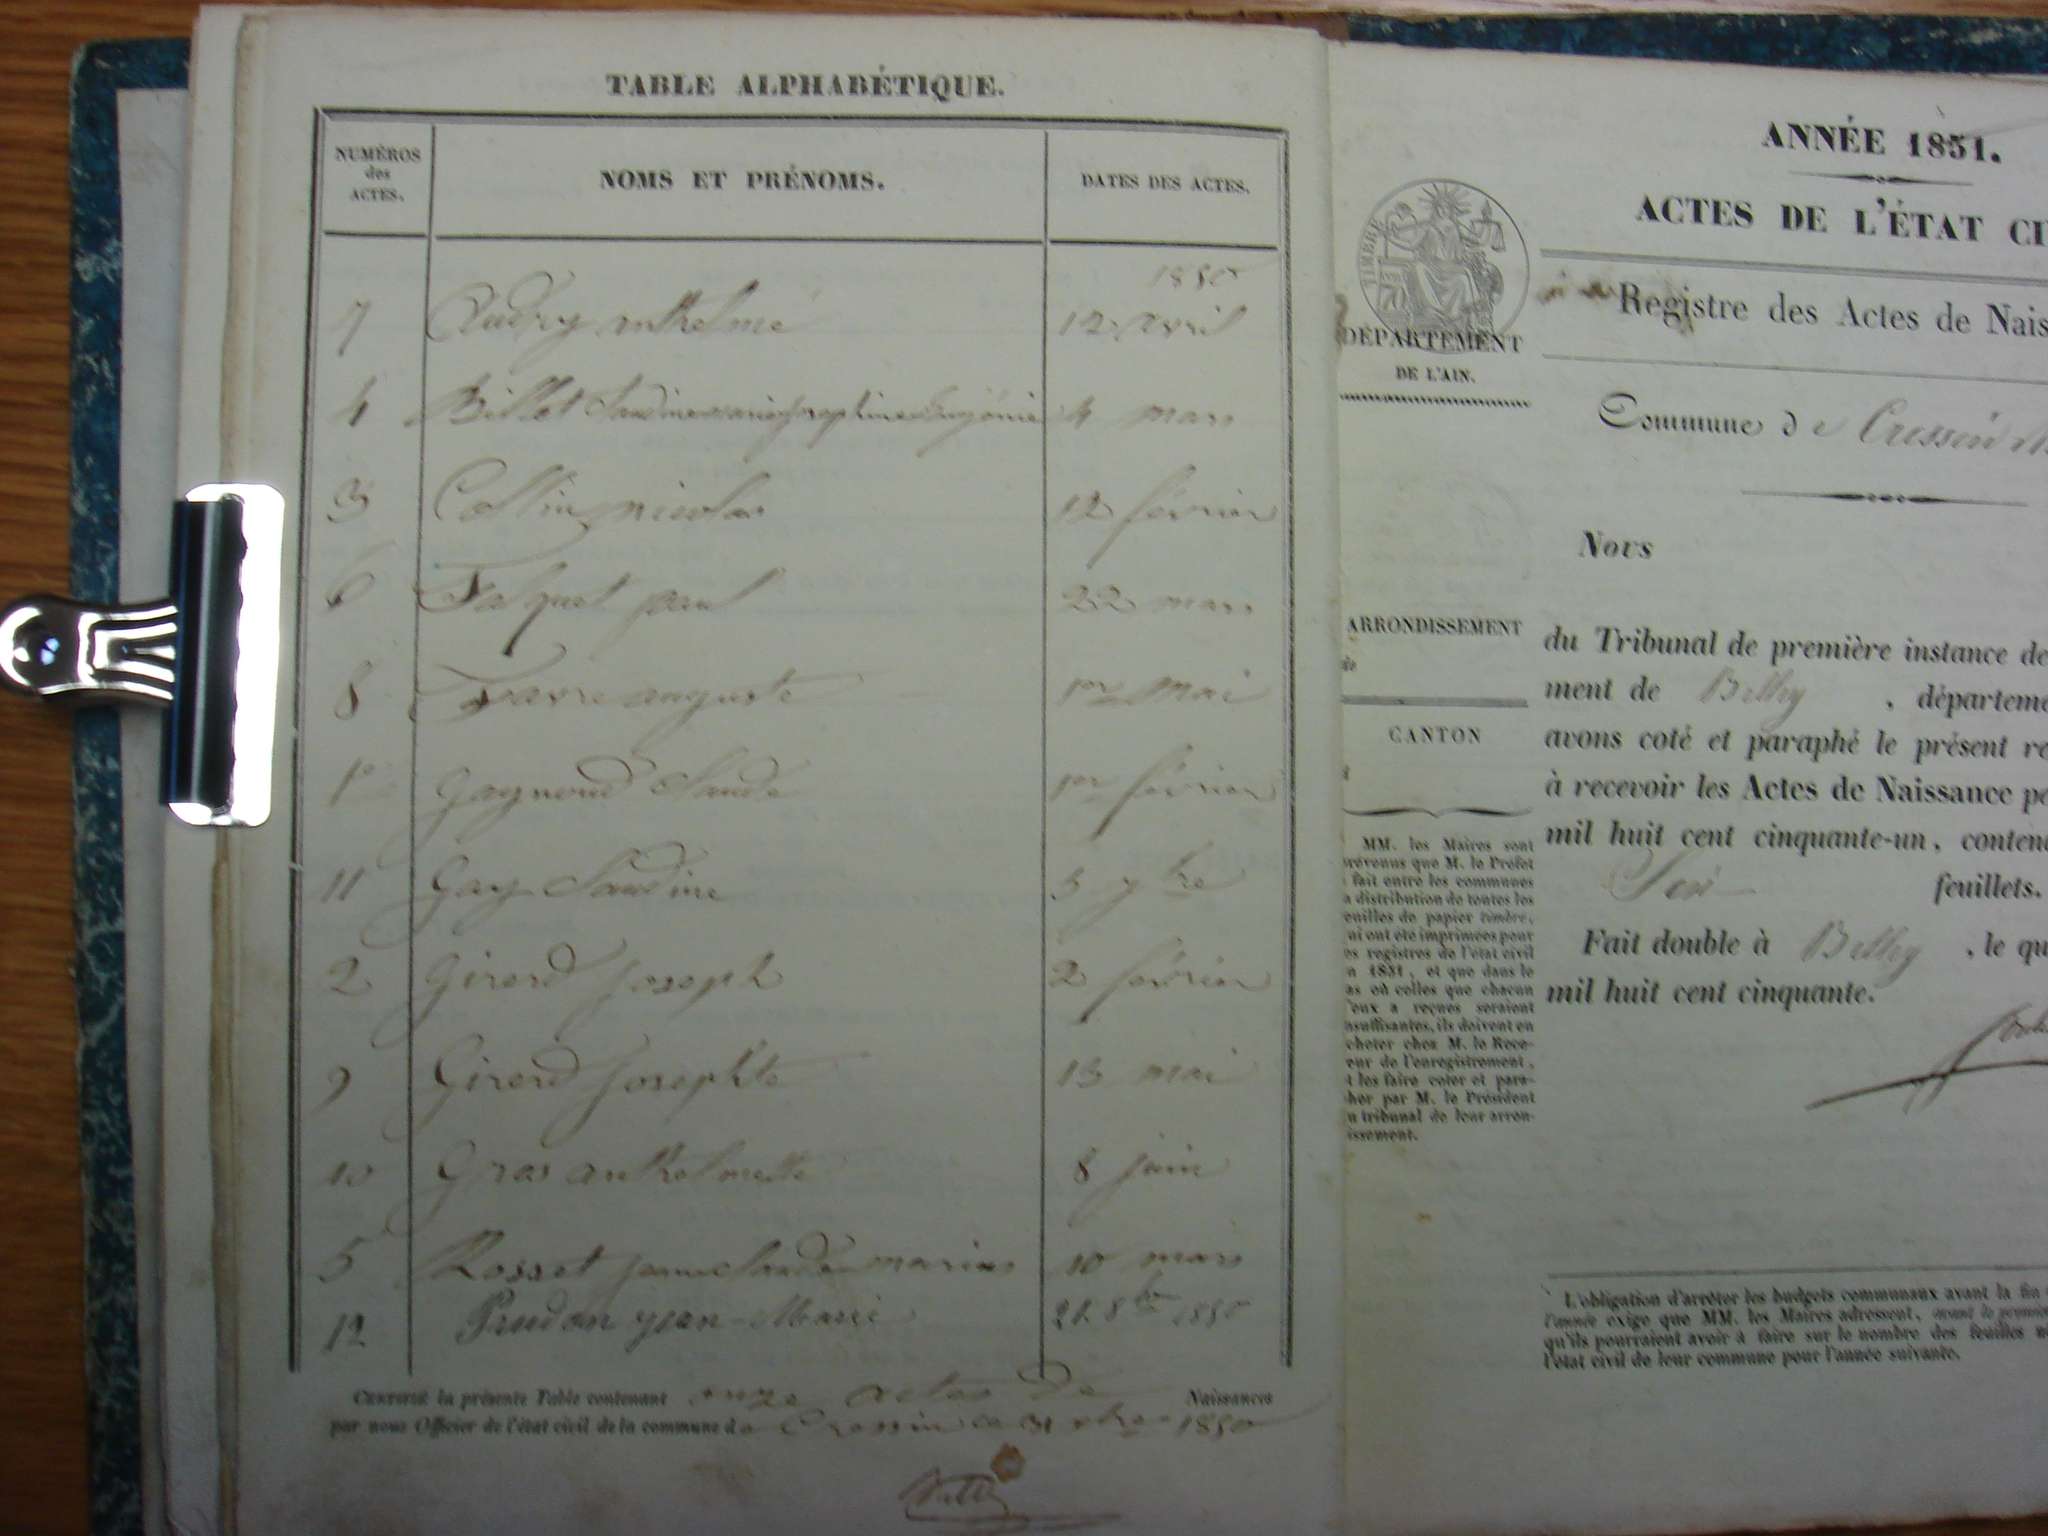 TABLE ALPHABÉTIQUE.
NUMÉROS
des
ACTES.
NOMS ET PRÉNOMS.
DATES DES ACTES.
1850
7 Audry anthelme 12 avril
4 Billet Claudine marie Josephine Eugénie 4 mars
3 Collin nicolas 12 février
6 Falquet paul 22 mars
8 Favre auguste 1er mai
1er Gaynoud Claude 1er février
11 Gay Claudine 5 7bre
2 Girerd Joseph 2 février
9 Girerd Josephte 13 mai
10 Gros anthelmette 8 juin
5 Rosset jean claude marius 10 mars
12 Prudon jean-Marie 21 8bre 1850
CERTIFIÉ la présente Table contenant onze actes de Naissances
par nous Officier de l'état civil de la commune de Cressin le 31 xbre 1850
ANNÉE 1851.
ACTES DE L'ÉTAT CI
TIMBRE
Registre des Actes de Nais
DÉPARTEMENT
DE L'AIN.
Commune de Cressin
Nous
ARRONDISSEMENT
de
CANTON
du Tribunal de première instance de
ment de Belley, départeme
avons coté et paraphé le présent re
à recevoir les Actes de Naissance po
mil huit cent cinquante-un, conten
Six feuillets.
Fait double à Belley, le qu
mil huit cent cinquante.
MM. les Maires sont
prévenus que M. le Préfet
fait entre les communes
a distribution de toutes les
euilles de papier timbré,
ui ont été imprimées pour
es registres de l'état civil
n 1851, et que dans le
as où celles que chacun
'eux a reçues seraient
nsuffisantes, ils doivent en
cheter chez M. le Rece-
eur de l'enregistrement,
t les faire coter et para-
her par M. le Président
u tribunal de leur arron-
issement.
L'obligation d'arrêter les budgets communaux avant la fin
l'année exige que MM. les Maires adressent, avant le premier
qu'ils pourraient avoir à faire sur le nombre des feuilles
l'état civil de leur commune pour l'année suivante.